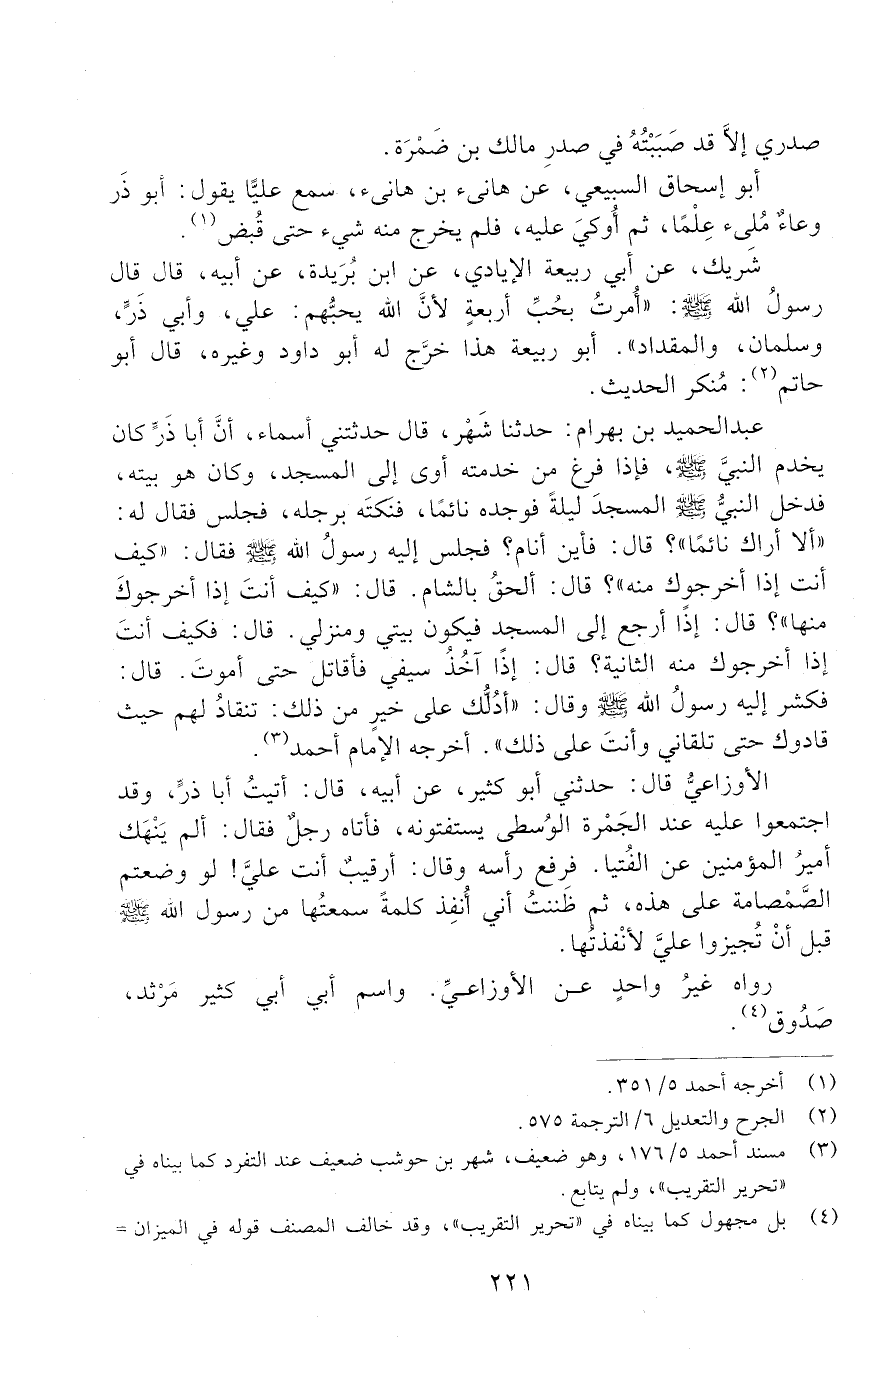 صدري إلاَّ قد صَبَبْتُهُ في صدرِ مالك بن ضَمْرَة.
أبو إسحاق السبيعي، عن هانىء بن هانىء، سمع عليًّا يقول: أبو ذَر
وعاءٌ مُلىء عِلْمًا، ثم أُوكيَ عليه، فلم يخرج منه شيء حتى قُبض(١).
شَريك، عن أبي ربيعة الإيادي، عن ابن بُرَيدة، عن أبيه، قال قال
رسولُ الله ﷺ: «أُمرتُ بحُبِّ أربعةٍ لأنَّ الله يحبُّهم: علي، وأبي ذَرٍّ،
وسلمان، والمقداد». أبو ربيعة هذا خرَّج له أبو داود وغيره، قال أبو
حاتم(٢): مُنكر الحديث.
عبدالحميد بن بهرام: حدثنا شَهْر، قال حدثتني أسماء، أنَّ أبا ذَرٍّ كان
يخدم النبيَّ ﷺ، فإذا فرغ من خدمته أوى إلى المسجد، وكان هو بيته،
فدخل النبيُّ ﷺ المسجدَ ليلةً فوجده نائمًا، فنكتَه برجله، فجلس فقال له:
«ألا أراك نائمًا»؟ قال: فأين أنام؟ فجلس إليه رسولُ الله ﷺ فقال: «كيف
أنت إذا أخرجوك منه»؟ قال: ألحقُ بالشام. قال: «كيف أنتَ إذا أخرجوكَ
منها»؟ قال: إذًا أرجع إلى المسجد فيكون بيتي ومنزلي. قال: فكيف أنتَ
إذا أخرجوك منه الثانية؟ قال: إذًا آخُذُ سيفي فأقاتل حتى أموتَ. قال:
فكشر إليه رسولُ الله ﷺ وقال: «أدُلُّك على خيرٍ من ذلك: تنقادُ لهم حيث
قادوك حتى تلقاني وأنتَ على ذلك». أخرجه الإمام أحمد(٣).
الأوزاعيُّ قال: حدثني أبو كثير، عن أبيه، قال: أتيتُ أبا ذرٍّ، وقد
اجتمعوا عليه عند الجَمْرة الوُسطى يستفتونه، فأتاه رجلٌ فقال: ألم يَنْهَك
أميرُ المؤمنين عن الفُتيا. فرفع رأسه وقال: أرقيبٌ أنت عليَّ! لو وضعتم
الصَّمْصامة على هذه، ثم ظَننتُ أني أُنفِذ كلمةً سمعتُها من رسول الله ﷺ
قبل أنْ تُجيزوا عليَّ لأنْفذتُها.
رواه غيرُ واحدٍ عن الأوزاعيِّ. واسم أبي أبي كثير مَرْثد،
صَدُوق(٤).
(١) أخرجه أحمد ٥/ ٣٥١.
(٢) الجرح والتعديل ٦/ الترجمة ٥٧٥.
(٣) مسند أحمد ٥/ ١٧٦، وهو ضعيف، شهر بن حوشب ضعيف عند التفرد كما بيناه في
«تحرير التقريب»، ولم يتابع.
(٤) بل مجهول كما بيناه في «تحرير التقريب»، وقد خالف المصنف قوله في الميزان =
٢٢١